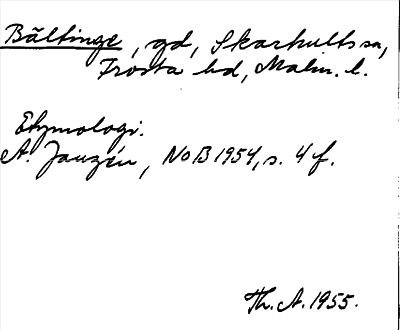 Bältinge, gd, Skarhults sn,
Frosta hd, Malm. l.
Etymologi.
A. Janzén, NoB 1954, s. 4 f.
Th. A. 1955.